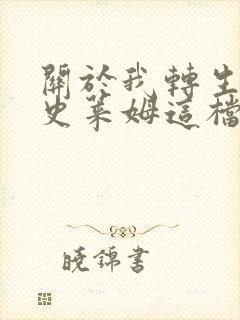 關於我轉生
史萊姆這檔
曉錦書